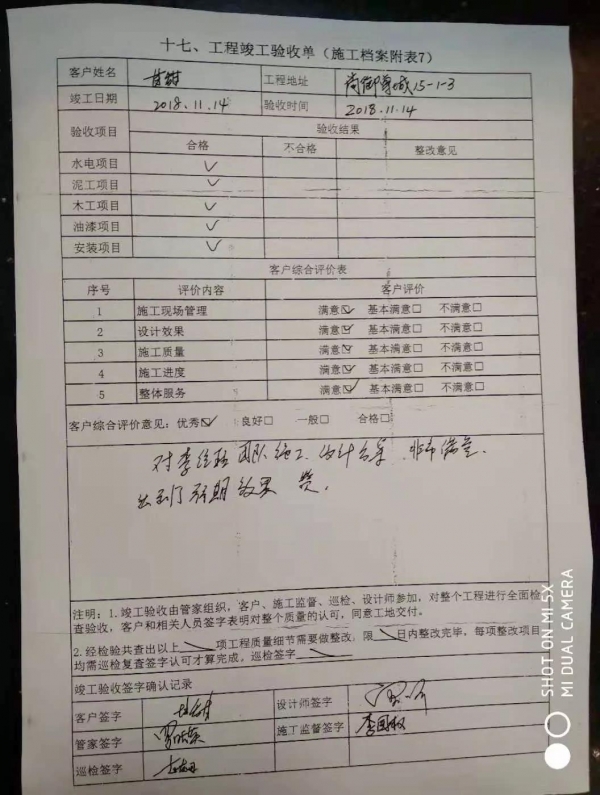 十七、工程竣工验收单（施工档案附表7）
客户姓名 工程地址 尚御尊城15-1-3
竣工日期 2018.11.14 验收时间 2018.11.14
验收项目 验收结果
合格 不合格 整改意见
水电项目 ✓
泥工项目 ✓
木工项目 ✓
油漆项目 ✓
安装项目 ✓
客户综合评价表
序号 评价内容 客户评价
1 施工现场管理 满意☑ 基本满意□ 不满意□
2 设计效果 满意☑ 基本满意□ 不满意□
3 施工质量 满意☑ 基本满意□ 不满意□
4 施工进度 满意☑ 基本满意□ 不满意□
5 整体服务 满意☑ 基本满意□ 不满意□
客户综合评价意见：优秀☑ 良好□ 一般□ 合格□
对李 团队施工、设计 非常满意、
达到了预期效果 赞。
注明：1.竣工验收由管家组织，客户、施工监督、巡检、设计师参加，对整个工程进行全面检
查验收，客户和相关人员签字表明对整个质量的认可，同意工地交付。
2.经检验共查出以上 项工程质量细节需要做整改，限 日内整改完毕，每项整改项目
均需巡检复查签字认可才算完成。巡检签字
竣工验收签字确认记录
客户签字 设计师签字
管家签字 施工监督签字 李国权
巡检签字
SHOT ON MI 5X
MI DUAL CAMERA